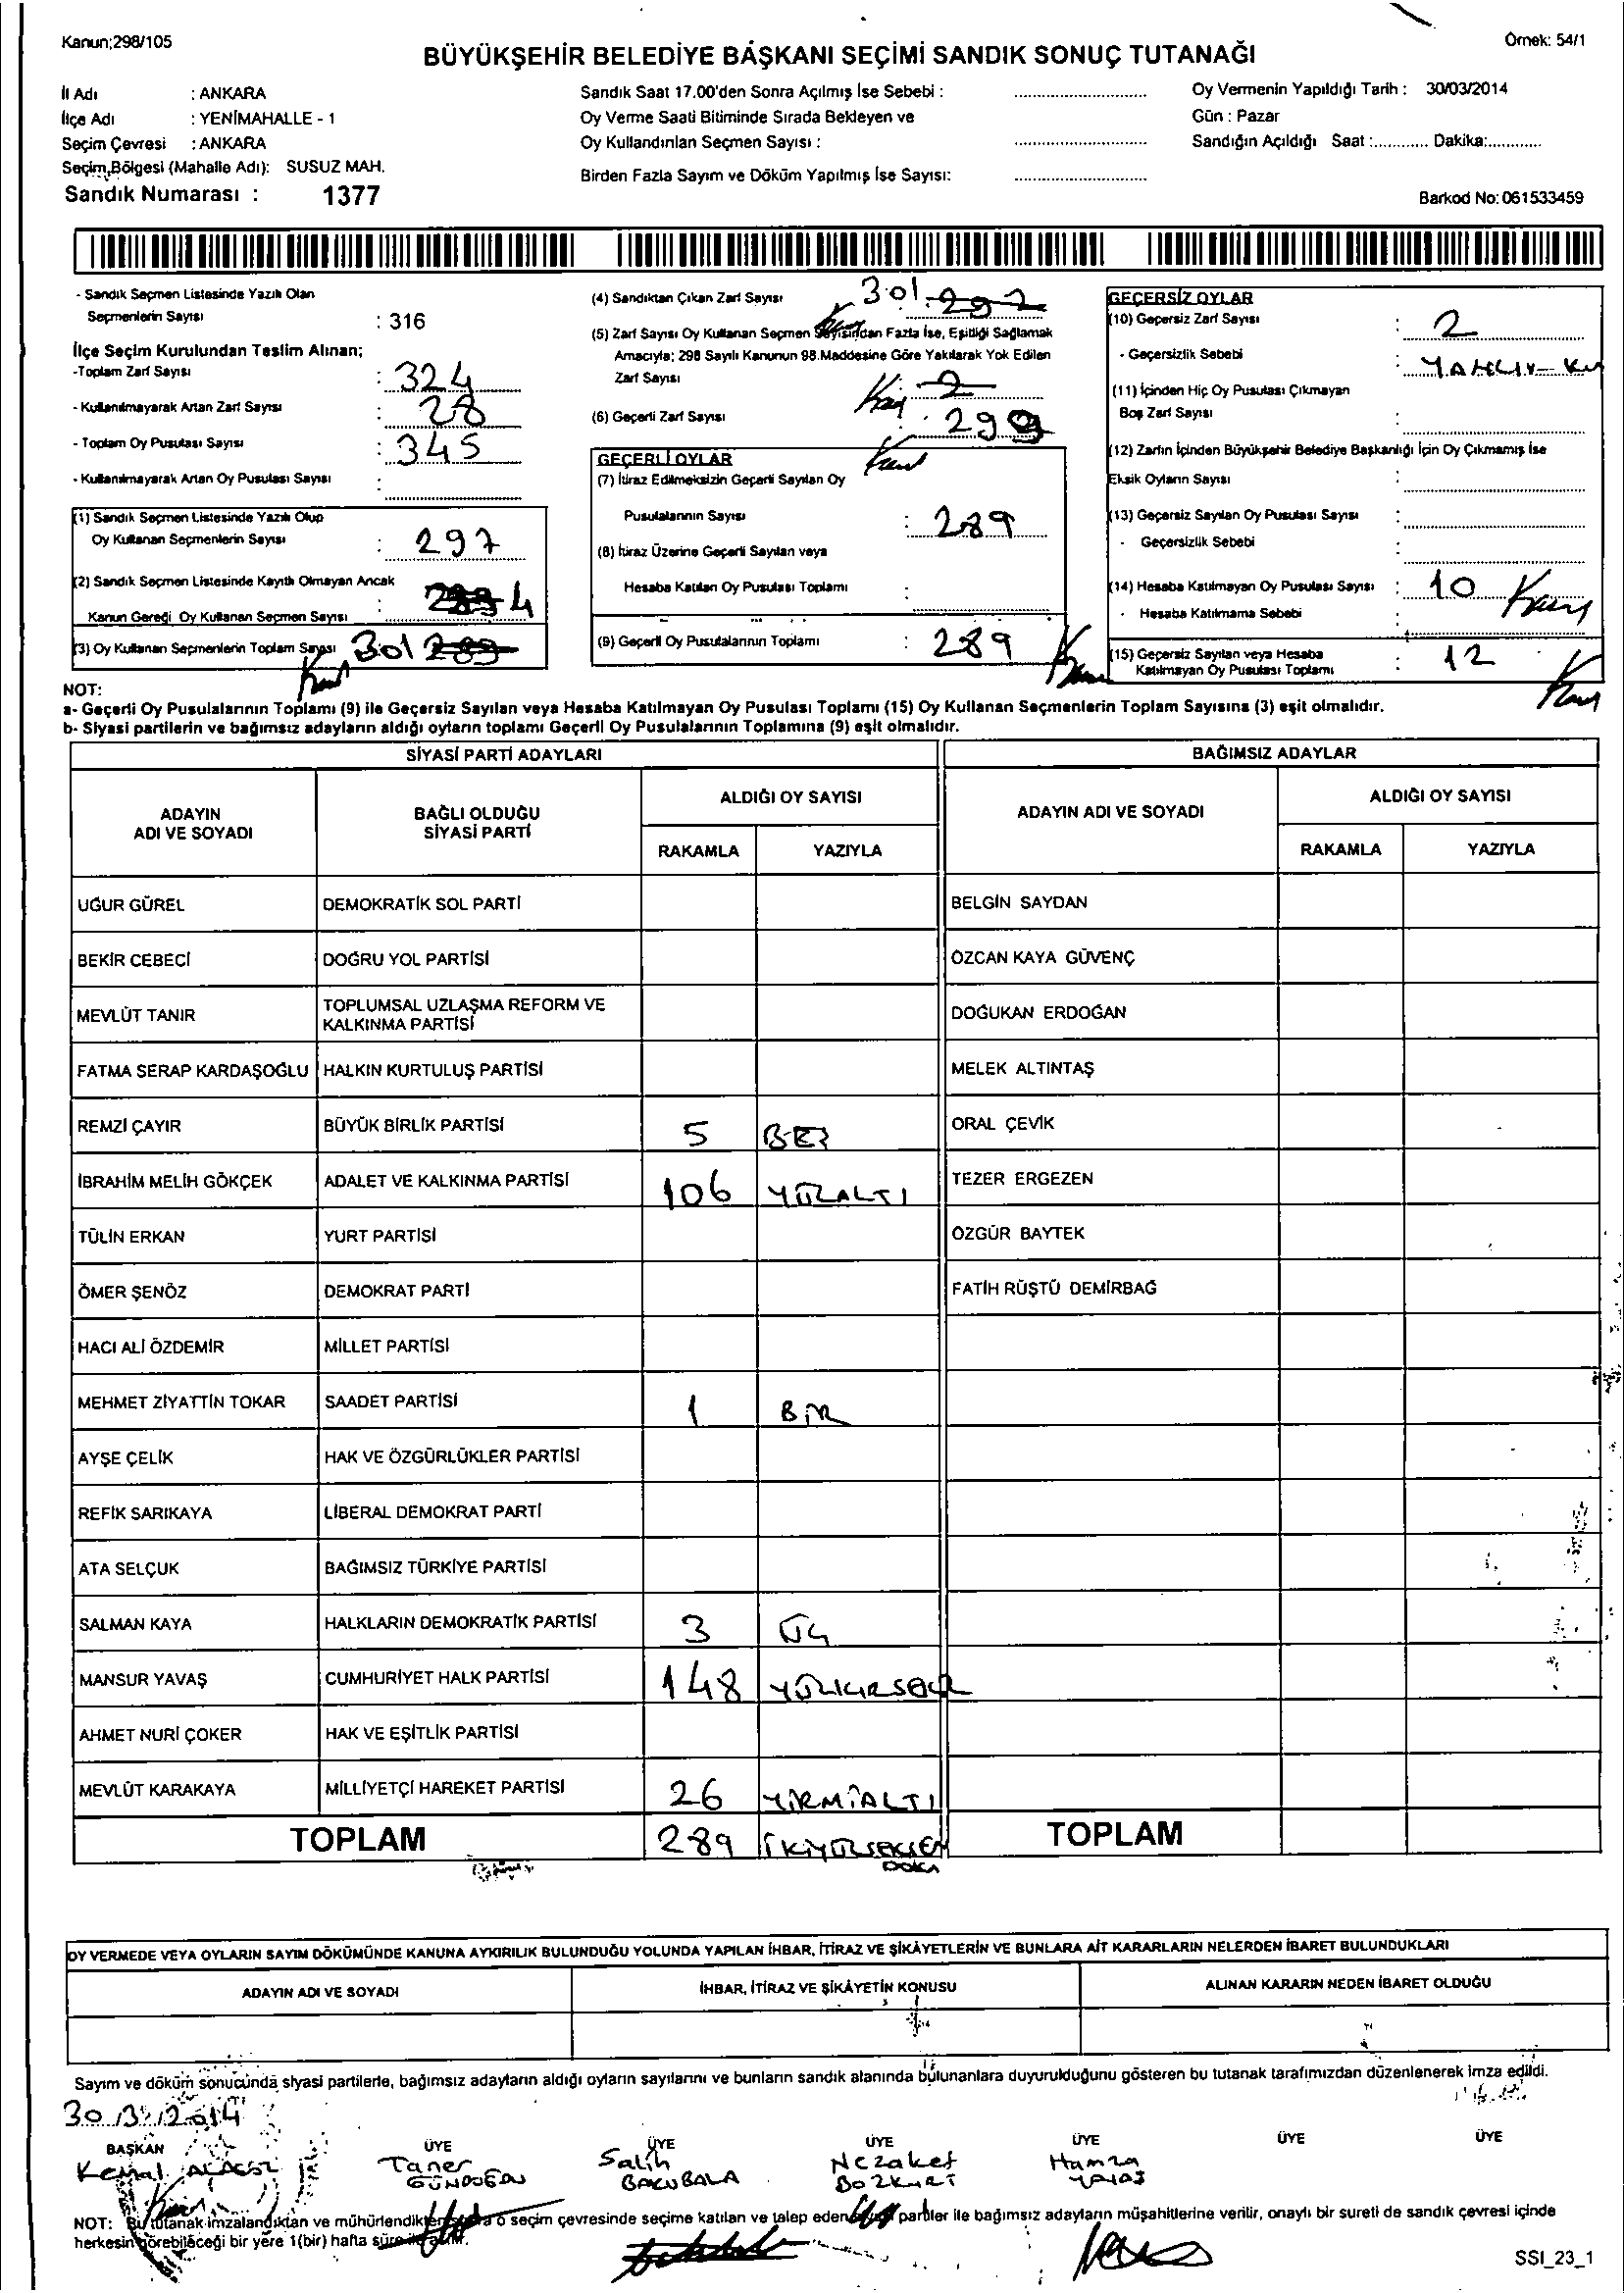 Kanun;298/105
Örnek: 54/1
BÜYÜKŞEHİR BELEDİYE BAŞKANI SEÇİMİ SANDIK SONUÇ TUTANAĞI
İl Adı : ANKARA
İlçe Adı : YENİMAHALLE - 1
Seçim Çevresi : ANKARA
Seçim Bölgesi (Mahalle Adı): SUSUZ MAH.
Sandık Numarası : 1377
Sandık Saat 17.00'den Sonra Açılmış İse Sebebi :
Oy Verme Saati Bitiminde Sırada Bekleyen ve
Oy Kullandırılan Seçmen Sayısı :
Birden Fazla Sayım ve Döküm Yapılmış İse Sayısı:
Oy Vermenin Yapıldığı Tarih : 30/03/2014
Gün : Pazar
Sandığın Açıldığı Saat :............ Dakika:............
Barkod No: 061533459
- Sandık Seçmen Listesinde Yazılı Olan
Seçmenlerin Sayısı : 316
İlçe Seçim Kurulundan Teslim Alınan;
-Toplam Zarf Sayısı : 324
- Kullanılmayarak Artan Zarf Sayısı : 28
- Toplam Oy Pusulası Sayısı : 345
- Kullanılmayarak Artan Oy Pusulası Sayısı :
(1) Sandık Seçmen Listesinde Yazılı Olup
Oy Kullanan Seçmenlerin Sayısı : 297
(2) Sandık Seçmen Listesinde Kayıtlı Olmayan Ancak
Kanun Gereği Oy Kullanan Seçmen Sayısı : 4
(3) Oy Kullanan Seçmenlerin Toplam Sayısı 301 289
(4) Sandıktan Çıkan Zarf Sayısı 301 297
(5) Zarf Sayısı Oy Kullanan Seçmen Sayısından Fazla İse, Eşitliği Sağlamak
Amacıyla; 298 Sayılı Kanunun 98.Maddesine Göre Yakılarak Yok Edilen
Zarf Sayısı 2
(6) Geçerli Zarf Sayısı : 299
GEÇERLİ OYLAR
(7) İtiraz Edilmeksizin Geçerli Sayılan Oy
Pusulalarının Sayısı : 289
(8) İtiraz Üzerine Geçerli Sayılan veya
Hesaba Katılan Oy Pusulası Toplamı :
(9) Geçerli Oy Pusulalarının Toplamı : 289
GEÇERSİZ OYLAR
(10) Geçersiz Zarf Sayısı : 2
- Geçersizlik Sebebi :
(11) İçinden Hiç Oy Pusulası Çıkmayan
Boş Zarf Sayısı :
(12) Zarfın İçinden Büyükşehir Belediye Başkanlığı İçin Oy Çıkmamış İse
Eksik Oyların Sayısı :
(13) Geçersiz Sayılan Oy Pusulası Sayısı :
- Geçersizlik Sebebi :
(14) Hesaba Katılmayan Oy Pusulası Sayısı : 10
- Hesaba Katılmama Sebebi :
(15) Geçersiz Sayılan veya Hesaba
Katılmayan Oy Pusulası Toplamı : 12
NOT:
a- Geçerli Oy Pusulalarının Toplamı (9) ile Geçersiz Sayılan veya Hesaba Katılmayan Oy Pusulası Toplamı (15) Oy Kullanan Seçmenlerin Toplam Sayısına (3) eşit olmalıdır.
b- Siyasi partilerin ve bağımsız adayların aldığı oyların toplamı Geçerli Oy Pusulalarının Toplamına (9) eşit olmalıdır.
SİYASİ PARTİ ADAYLARI BAĞIMSIZ ADAYLAR
ADAYIN ADI VE SOYADI BAĞLI OLDUĞU SİYASİ PARTİ ALDIĞI OY SAYISI ADAYIN ADI VE SOYADI ALDIĞI OY SAYISI
RAKAMLA YAZIYLA RAKAMLA YAZIYLA
UĞUR GÜREL DEMOKRATİK SOL PARTİ BELGİN SAYDAN
BEKİR CEBECİ DOĞRU YOL PARTİSİ ÖZCAN KAYA GÜVENÇ
MEVLÜT TANIR TOPLUMSAL UZLAŞMA REFORM VE KALKINMA PARTİSİ DOĞUKAN ERDOĞAN
FATMA SERAP KARDAŞOĞLU HALKIN KURTULUŞ PARTİSİ MELEK ALTINTAŞ
REMZİ ÇAYIR BÜYÜK BİRLİK PARTİSİ 5 BEŞ ORAL ÇEVİK
İBRAHİM MELİH GÖKÇEK ADALET VE KALKINMA PARTİSİ 106 YÜZALTI TEZER ERGEZEN
TÜLİN ERKAN YURT PARTİSİ ÖZGÜR BAYTEK
ÖMER ŞENÖZ DEMOKRAT PARTİ FATİH RÜŞTÜ DEMİRBAĞ
HACI ALİ ÖZDEMİR MİLLET PARTİSİ
MEHMET ZİYATTİN TOKAR SAADET PARTİSİ 1 BİR
AYŞE ÇELİK HAK VE ÖZGÜRLÜKLER PARTİSİ
REFİK SARIKAYA LİBERAL DEMOKRAT PARTİ
ATA SELÇUK BAĞIMSIZ TÜRKİYE PARTİSİ
SALMAN KAYA HALKLARIN DEMOKRATİK PARTİSİ 3 ÜÇ
MANSUR YAVAŞ CUMHURİYET HALK PARTİSİ 148 YÜZKIRSEKİZ
AHMET NURİ ÇOKER HAK VE EŞİTLİK PARTİSİ
MEVLÜT KARAKAYA MİLLİYETÇİ HAREKET PARTİSİ 26 YİRMİALTI
TOPLAM 289 İKİYÜZSEKSEN DOKUZ TOPLAM
OY VERMEDE VEYA OYLARIN SAYIM DÖKÜMÜNDE KANUNA AYKIRILIK BULUNDUĞU YOLUNDA YAPILAN İHBAR, İTİRAZ VE ŞİKÂYETLERİN VE BUNLARA AİT KARARLARIN NELERDEN İBARET BULUNDUKLARI
ADAYIN ADI VE SOYADI İHBAR, İTİRAZ VE ŞİKÂYETİN KONUSU ALINAN KARARIN NEDEN İBARET OLDUĞU
Sayım ve döküm sonucunda siyasi partilerle, bağımsız adayların aldığı oyların sayılarını ve bunların sandık alanında bulunanlara duyurulduğunu gösteren bu tutanak tarafımızdan düzenlenerek imza edildi.
30/3/2014
BAŞKAN ÜYE ÜYE ÜYE ÜYE ÜYE ÜYE
Kemal Taner GÜNDOĞAN Salih BAKUBALA Nezaket BOZKURT Hamza
NOT: Bu tutanak imzalandıktan ve mühürlendikten sonra o seçim çevresinde seçime katılan ve talep eden partiler ile bağımsız adayların müşahitlerine verilir, onaylı bir sureti de sandık çevresi içinde
herkesin görebileceği bir yere 1(bir) hafta süre ile asılır.
SSI_23_1